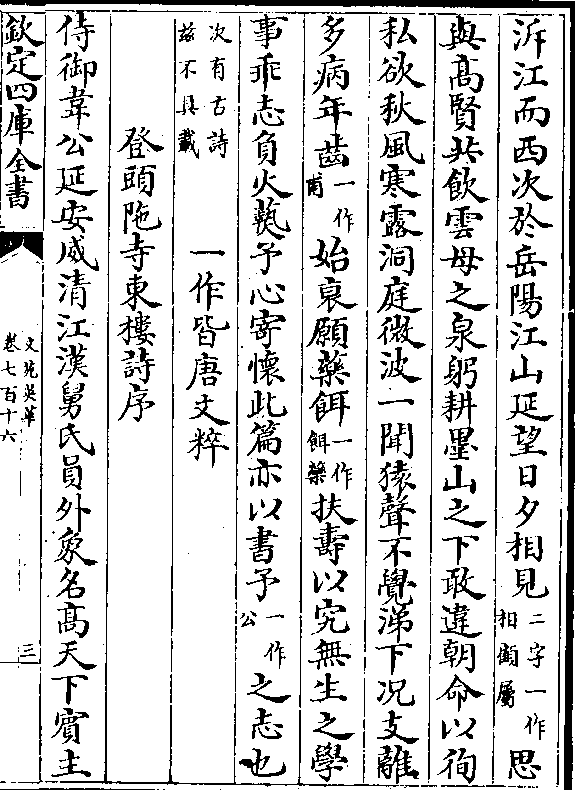 泝江而西次於岳陽江山延望日夕相見二字一作相顧屬思
與髙賢共飲雲母之泉躬耕墨山之下敢違朝命以徇
私欲秋風寒露洞庭微波一聞猿聲不覺涕下况支離
多病年齒一作甫始衰願藥餌一作餌藥扶壽以究無生之學
事乖志負火爇予心寄懐此篇亦以書予一作公之志也
次有古詩兹不具載　一作皆唐文粹
登頭陁寺東樓詩序
侍御韋公延安威清江漢舅氏員外象名髙天下賓主
欽定四庫全書
文苑英華
卷七百十六
三